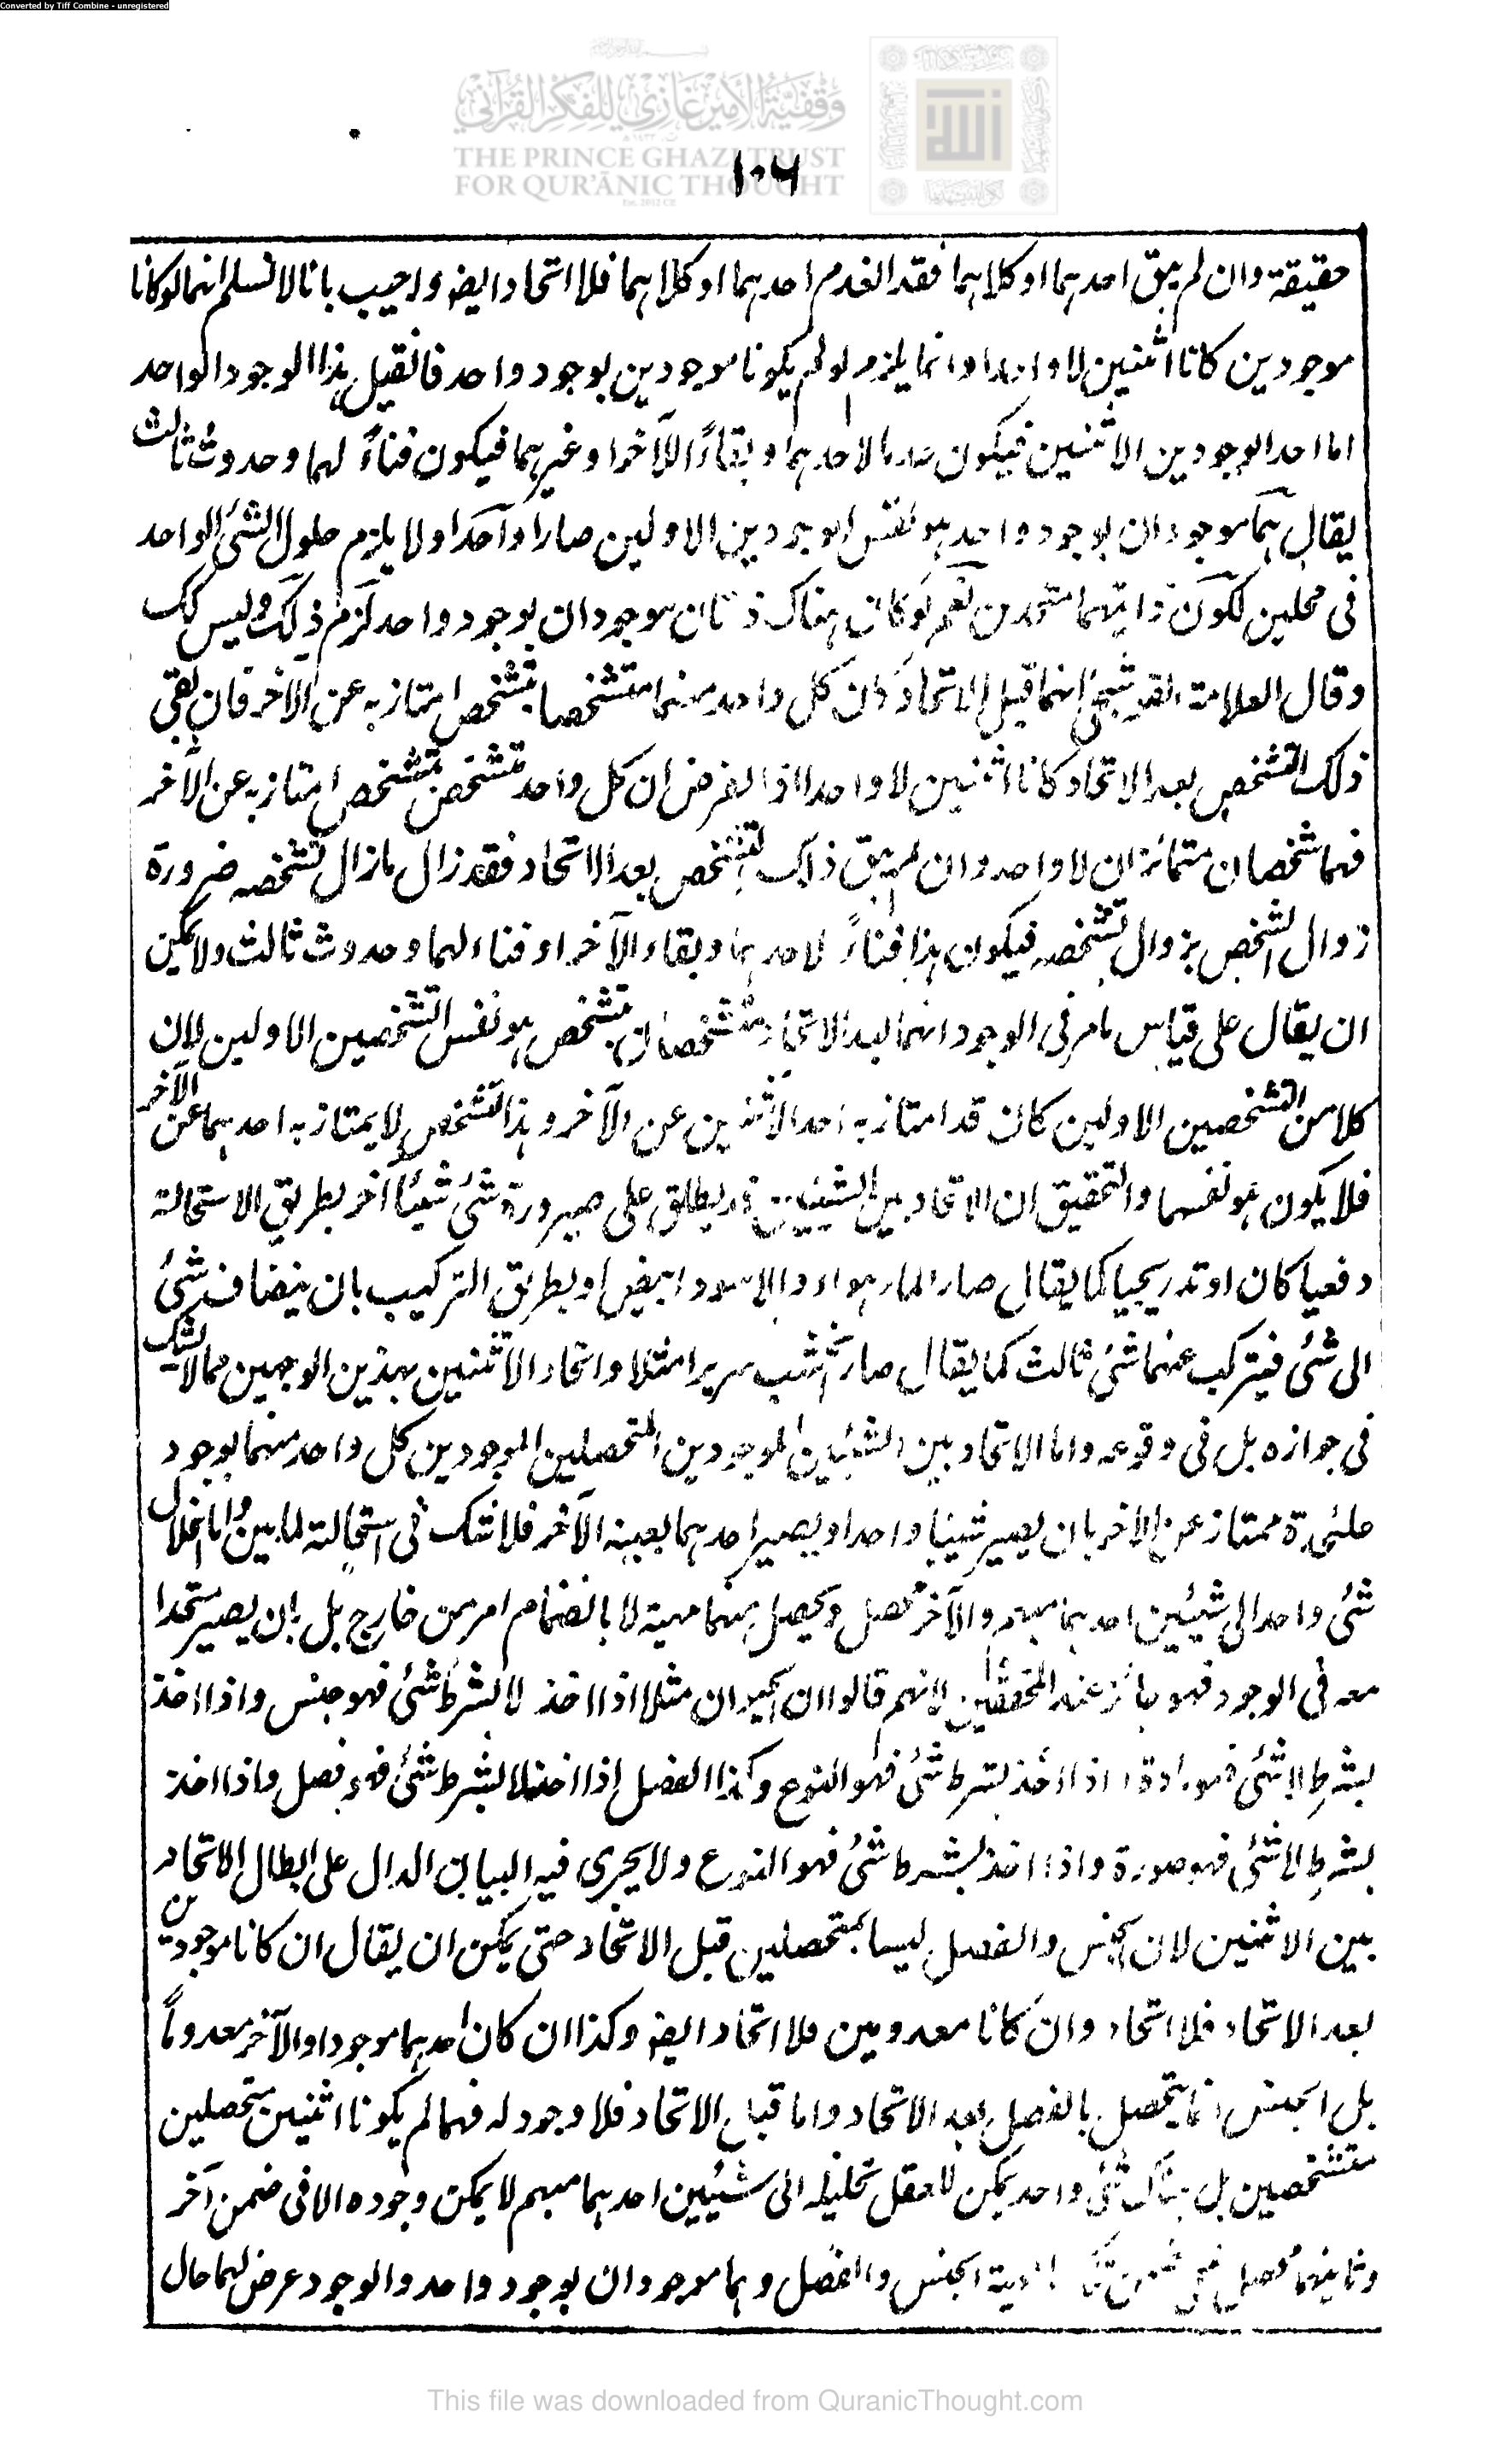 Converted by Tiff Combine - unregistered
وقفية الأمير غازي للفكر القرآني
THE PRINCE GHAZI TRUST
FOR QUR'ĀNIC THOUGHT
١٠٦
حقيقة وان لم يبق احدهما او كلاهما فقد انعدم احدهما او كلاهما فلا اتحاد ايضا واجيب بانا لا نسلم انهما لو كانا
موجودين كانا اثنين لا واحدا وانما يلزم لو لم يكونا موجودين بوجود واحد فان قيل هذا الوجود الواحد
اما احد الوجودين الاثنين فيكون عدما لاحدهما وبقاءً للآخر او غيرهما فيكون فناءً لهما وحدوث ثالث
يقال هما موجودان بوجود واحد هو نفس الوجودين الاولين صارا واحدا ولا يلزم حلول الشئ الواحد
فى محلين لكون ذاتيهما متحدين نعم لو كان هناك ذاتان موجودان بوجود واحد لزم ذلك وليس كك
وقال العلامة القوشجى انهما قبل الاتحاد كان كل واحد منهما متشخصا بتشخص امتاز به عن الآخر فان بقى
ذلك التشخص بعد الاتحاد كانا اثنين لا واحدا اذ الفرض ان كل واحد متشخص بتشخص امتاز به عن الآخر
فهما شخصان متمائزان لا واحد وان لم يبق ذلك التشخص بعد الاتحاد فقد زال ما زال تشخصه ضرورة
زوال الشخص بزوال تشخصه فيكون هذا فناءً لاحدهما وبقاء الآخر او فناء لهما وحدوث ثالث ولا يمكن
ان يقال على قياس ما مر فى الوجود انهما بعد الاتحاد متشخصان بتشخص هو نفس التشخصين الاولين لان
كلا من التشخصين الاولين كان قد امتاز به احد الاثنين عن الآخر وهذا التشخص لا يمتاز به احدهما عن الآخر
فلا يكون هو نفسهما والتحقيق ان الاتحاد بين الشيئين قد يطلق على صيرورة شئ شيئًا آخر بطريق الاستحالة
دفعيا كان او تدريجيا كما يقال صار الماء هواء والاسود ابيض او بطريق التركيب بان ينضاف شئ
الى شئ فيتركب عنهما شئ ثالث كما يقال صار الخشب سريرا مثلا واتحاد الاثنين بهذين الوجهين مما لا شك
فى جوازه بل فى وقوعه واما الاتحاد بين الشيئين الموجودين المتحصلين الموجودين كل واحد منهما بوجود
علئحدة ممتاز عن الآخر بان يصير شيئا واحدا ويصير احدهما بعينه الآخر فلا شك فى استحالته لما بين واما انحلال
شئ واحد الى شيئين احدهما مبهم والآخر محصل ويحصل منهما مهية لا بانضمام امر من خارج بل بان يصير متحدا
معه فى الوجود فهو جائز عند المحققين لانهم قالوا ان الحيوان مثلا اذا اخذ لا بشرط شئ فهو جنس واذا اخذ
بشرط لا شئ فهو مادة واذا اخذ بشرط شئ فهو النوع وكذا الفصل اذا اخذ لا بشرط شئ فهو فصل واذا اخذ
بشرط لا شئ فهو صورة واذا اخذ بشرط شئ فهو النوع ولا يجرى فيه البيان الدال على ابطال الاتحاد
بين الاثنين لان الجنس والفصل ليسا بمتحصلين قبل الاتحاد حتى يمكن ان يقال ان كانا موجودين
بعد الاتحاد فلا اتحاد وان كانا معدومين فلا اتحاد ايضا وكذا ان كان احدهما موجودا والآخر معدوماً
بل الجنس انما يتحصل بالفصل بعد الاتحاد واما قبل الاتحاد فلا وجود له فهما لم يكونا اثنين متحصلين
متشخصين بل هناك شئ واحد يمكن للعقل تحليله الى شيئين احدهما مبهم لا يمكن وجوده الا فى ضمن آخر
وثانيهما محصل الجنس والفصل وهما موجودان بوجود واحد والوجود عرض لهما حال
This file was downloaded from QuranicThought.com